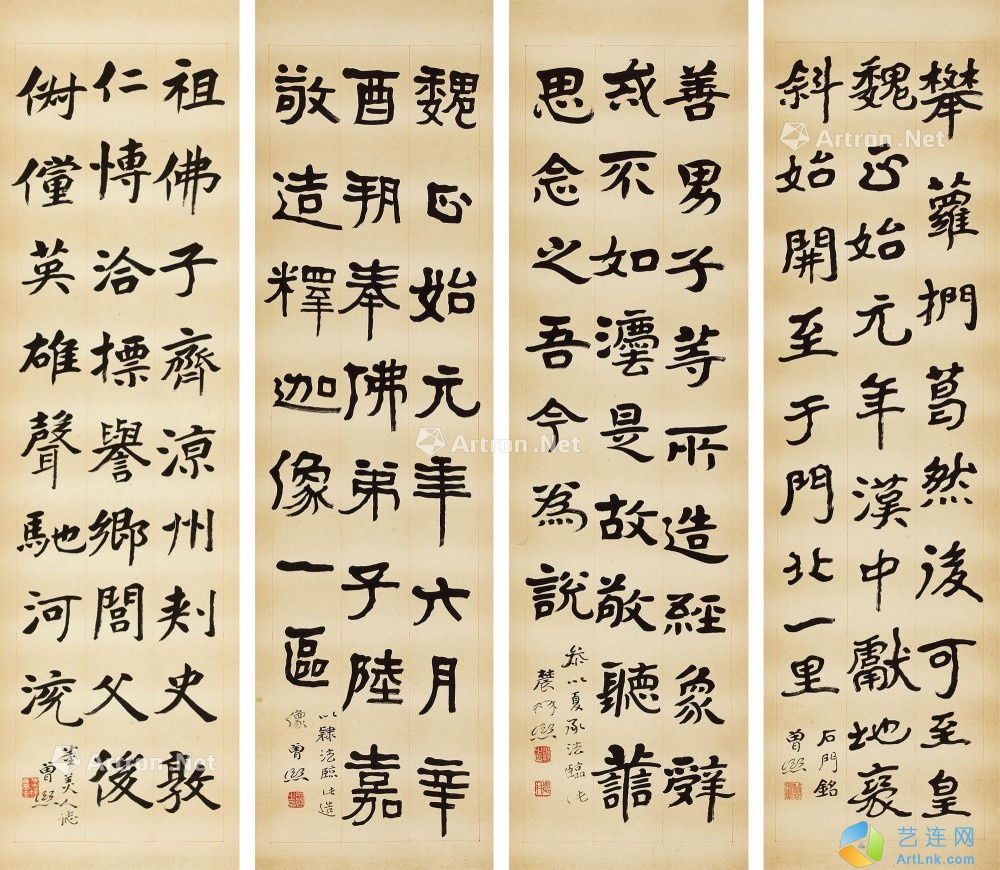 攀蘿捫葛然後可至皇
魏正始元年漢中獻地褒
斜始開至于門北一里
石門銘
曾熙
善男子等所造經象辤
或不如灋是故敬聽
思念之吾今為說
參以夏承法臨此
農髯熙
魏正始元年六月辛
酉朔奉佛弟子陸嘉
敬造釋迦像一區
以隸法臨此造
像 曾熙
祖佛子齊涼州刾史敦
仁博洽標譽鄉閭父後
儻英雄聲馳河
董美人誌
曾熙
Artron.Net
Artron.Net
Artron.Net
Artron.Net
艺连网
ArtLnk.com